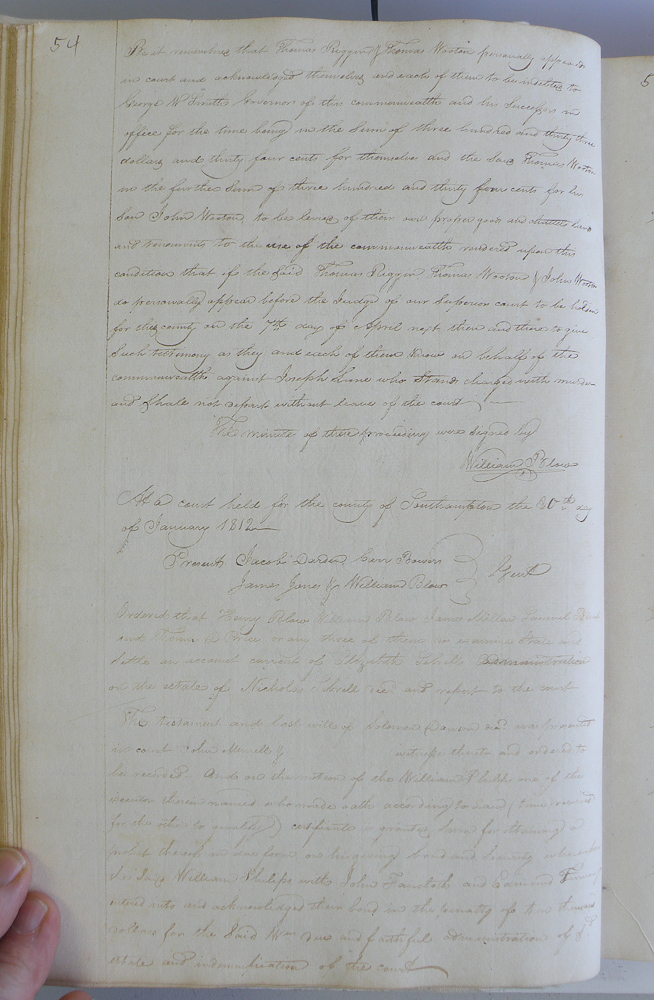 54
Be it remembred that Thomas Riggin & Thomas Wooton personally appeared
in court and acknowledged themselves and each of them to be indebted to
George W Smith Governor of this commonwealth and his Successors in
office for the time being in the Sum of three hundred and thirty three
dollars and thirty four cents for themselves and the Said Thomas Wooton
in the further Sum of three hundred and thirty four cents for his
Son John Wooton, to be levied of their own proper goods and chattles land
and tenements to the use of the commonwealth rendered upon this
condition that if the Said Thomas Riggin Thomas Wooton & John Wooton
do personally appear before the Judge of our Superior court to be holden
for this county on the 7th day of April next then and there to give
Such testimony as they and each of them Know in behalf of the
commonwealth against Joseph Lane who Stands charged with murder
and Shall not depart without leave of the court
The minute of these proceeding were Signed by
William Blow
At a court held for the county of Southampton the 20th day
of January 1812
Present Jacob Darden Carr Bowers
James Jones & William Blow Gent
Ordered that Henry Blow William Blow James Millar Samuel
and or any three of them do examine State and
Settle an account current of Elizabeth administration
on the estate of Nicholas decd and report to the court
The testament and last will of Solomon decd was brought
in court John & witness thereto and ordered to
be recorded. And on the motion of the William Philips one of the
executors therein named who made oath according to Law (time reserved
for the other to qualify) certificate is granted him for obtaining a
probat thereof in due form, on his giving bond and Security whereupon
the Said William Philips with John and Edmund
entered into and acknowledged their bond in the penalty of ten thousand
dollars for the Said Wm due and faithful administration of sd
estate and indemnification of the court